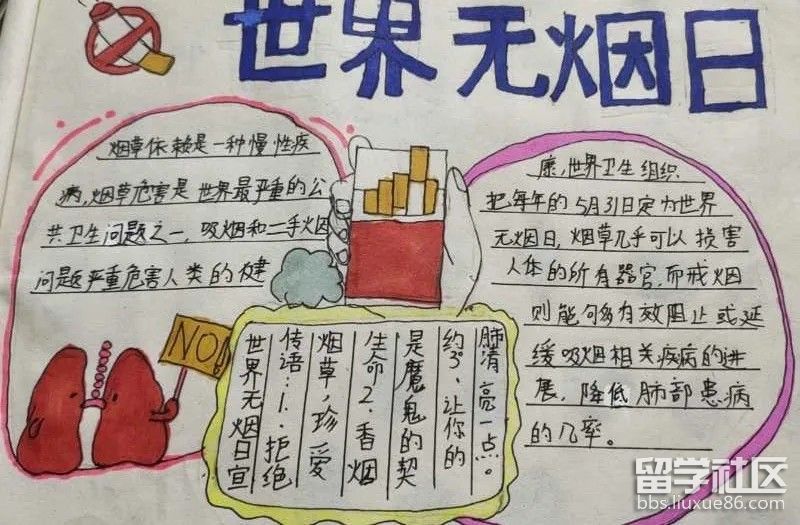 世界无烟日
烟草依赖是一种慢性疾
病，烟草危害是世界最严重的公
共卫生问题之一，吸烟和二手烟
问题严重危害人类的健
康，世界卫生组织
把每年的5月31日定为世界
无烟日，烟草几乎可以损害
人体的所有器官，而戒烟
则能够有效阻止或延
缓吸烟相关疾病的进
展，降低肺部患病
的几率。
NO!
世界无烟日宣
传语：1.拒绝
烟草，珍爱
生命2.香烟
是魔鬼的契
约3.让你的
肺清亮一点。
留学社区
bbs.liuxue86.com